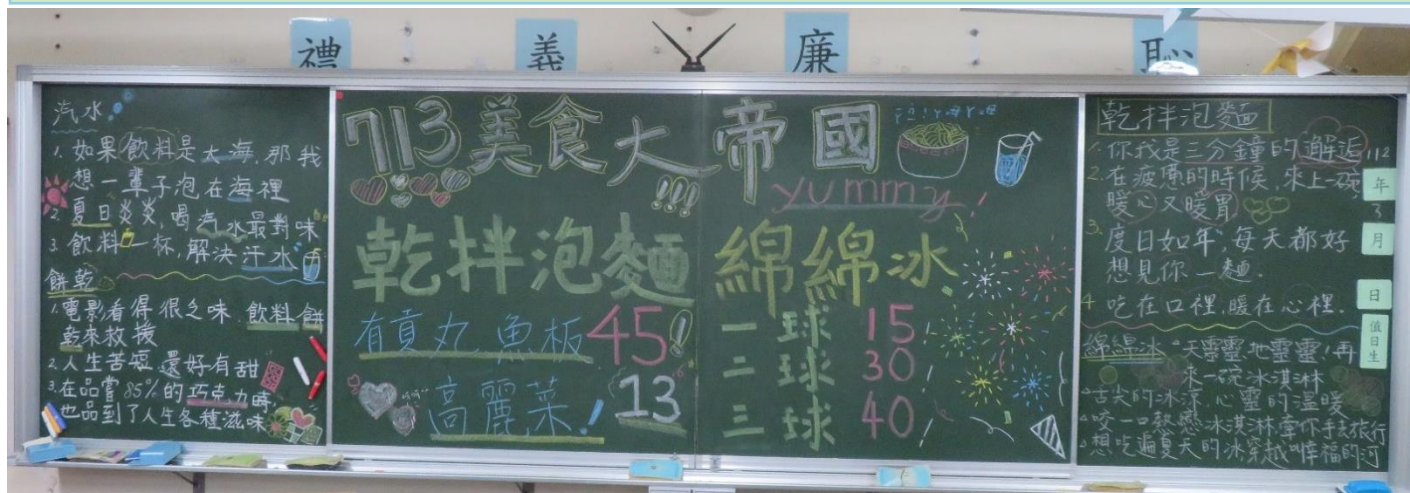 禮 義 廉 恥
汽水
1. 如果飲料是大海,那我
想一輩子泡在海裡
2. 夏日炎炎,喝汽水最對味
3. 飲料一杯,解決汗水
餅乾
1. 電影看得很乏味 飲料餅
乾來救援
2. 人生苦短,還好有甜
3. 在品嘗85%的巧克力時,
也品到了人生各種滋味
713美食大帝國
yummy!
乾拌泡麵
有貢丸 魚板 45!
高麗菜! 13
綿綿冰
一球 15
二球 30
三球 40
乾拌泡麵
1. 你我是三分鐘的邂逅
2. 在疲憊的時候,來上一碗
暖心又暖胃
3. 度日如年,每天都好
想見你一麵.
4. 吃在口裡,暖在心裡.
綿綿冰 天靈靈地靈靈!再
來一碗冰淇淋
舌尖的冰涼 心靈的溫暖
咬一口熱戀冰淇淋牽你手去旅行
想吃遍夏天的冰穿越幸福的河
112
年
3
月
日
值日生